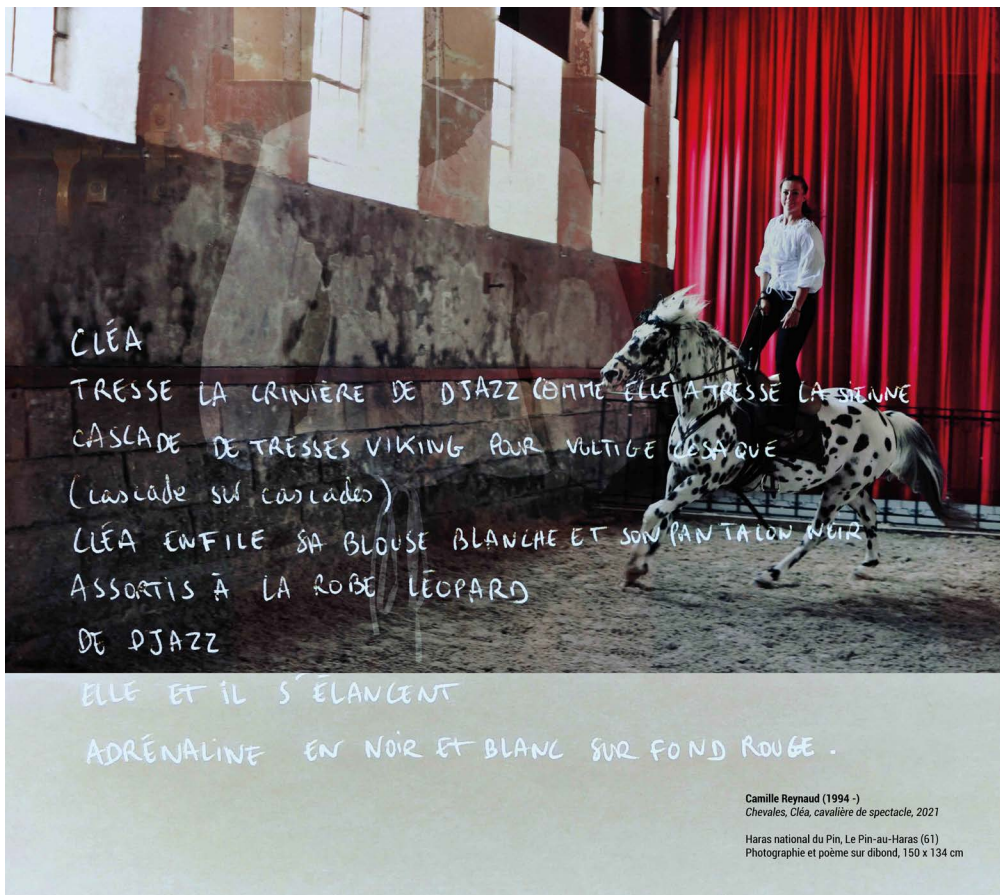 CLÉA
TRESSE LA CRINIÈRE DE DJAZZ COMME ELLE A TRESSÉ LA SIENNE
CASCADE DE TRESSES VIKING POUR VOLTIGE COSAQUE
(cascade sur cascades)
CLÉA ENFILE SA BLOUSE BLANCHE ET SON PANTALON NOIR
ASSORTIS À LA ROBE LÉOPARD
DE DJAZZ
ELLE ET IL S'ÉLANCENT
ADRÉNALINE EN NOIR ET BLANC SUR FOND ROUGE.
Camille Reynaud (1994 -)
Chevales, Cléa, cavalière de spectacle, 2021
Haras national du Pin, Le Pin-au-Haras (61)
Photographie et poème sur dibond, 150 x 134 cm